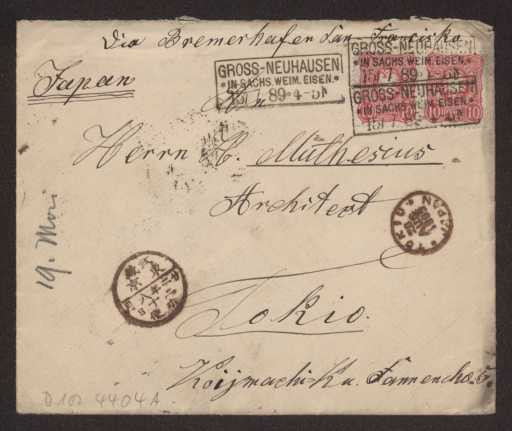 Via Bremerhafen San-Francisko
Japan
GROSS-NEUHAUSEN
* IN SACHS. WEIM. EISEN. *
15/7 89·4-5N
GROSS-NEUHAUSEN
* IN SACHS. WEIM. EISEN. *
15/7 89·4-5N
GROSS-NEUHAUSEN
* IN SACHS. WEIM. EISEN. *
10
An
Herrn H. Muthesius
Architect
TOKIO
JAPAN
東京
Tokio.
Koijmachi-Ku
D 102 4404 A